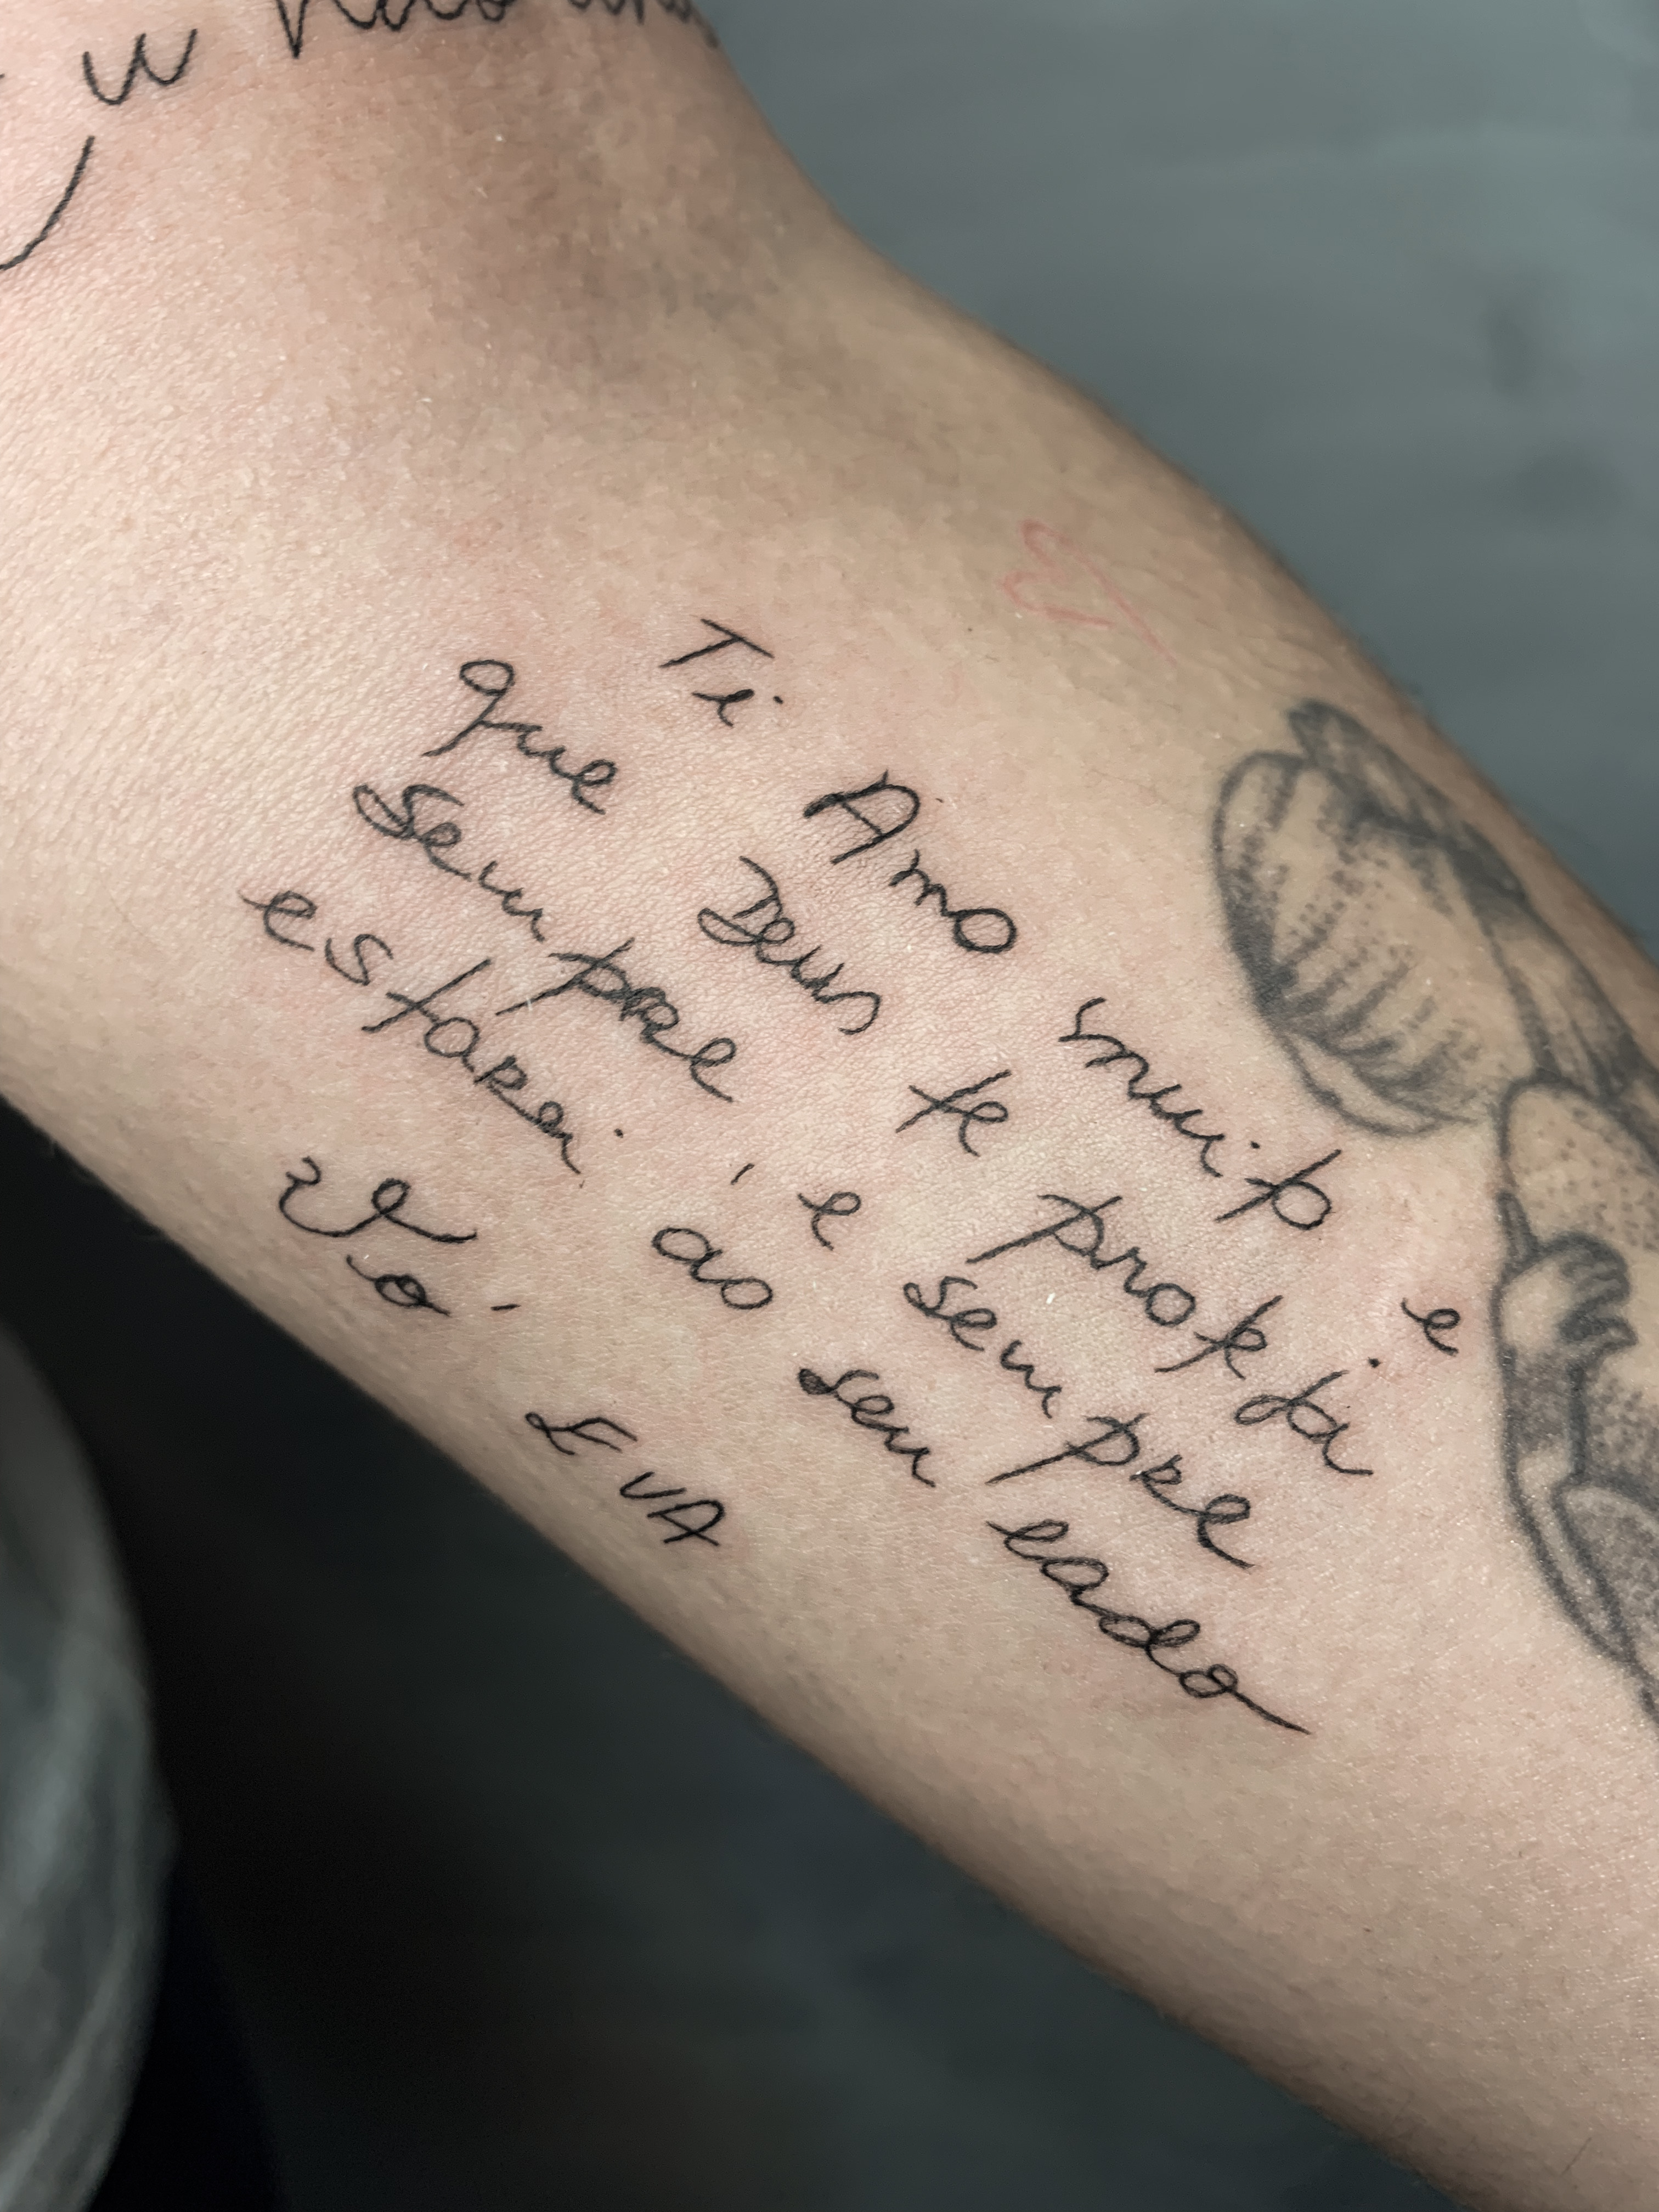 Ti Amo muito e
que Deus te proteja
sempre, e sempre
estarei ao seu lado
Vó Eva